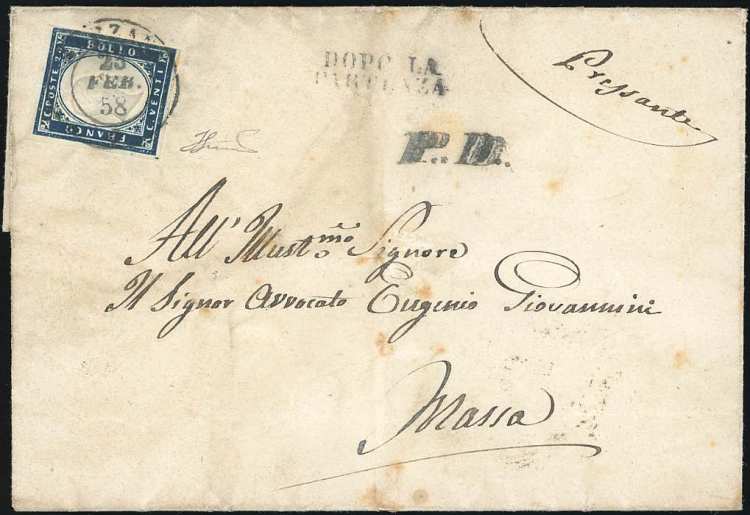 BOLLO
C. POSTE 20
C. VENTI
FRANCO
25
FEB.
58
DOPO LA
PARTENZA
P.D.
Pressante
All' Illust.mo Signore
Il Signor Avvocato Eugenio Giovannini
Massa